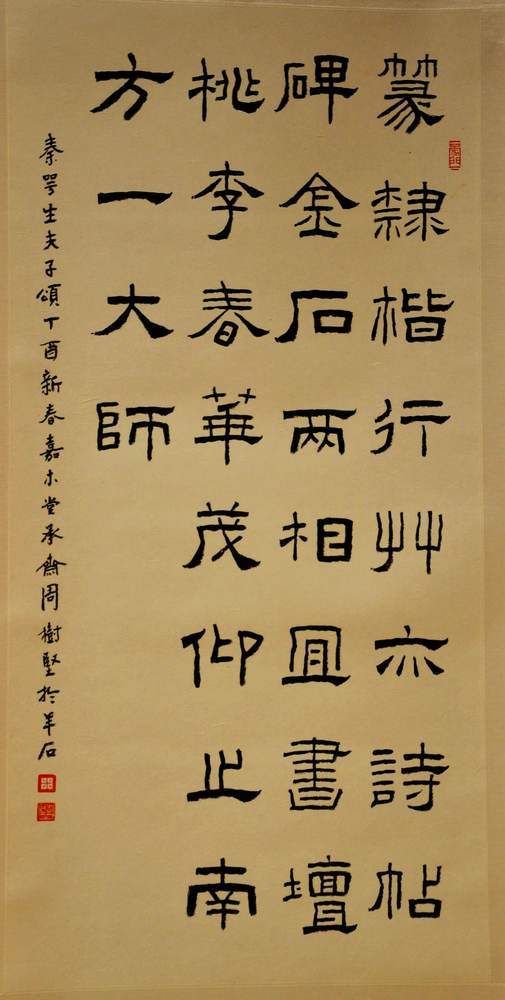 篆隸楷行艸亦詩帖
碑金石兩相宜書壇
桃李春華茂仰止南
方一大師
秦咢生夫子頌丁酉新春嘉木堂承齋周樹堅於羊石